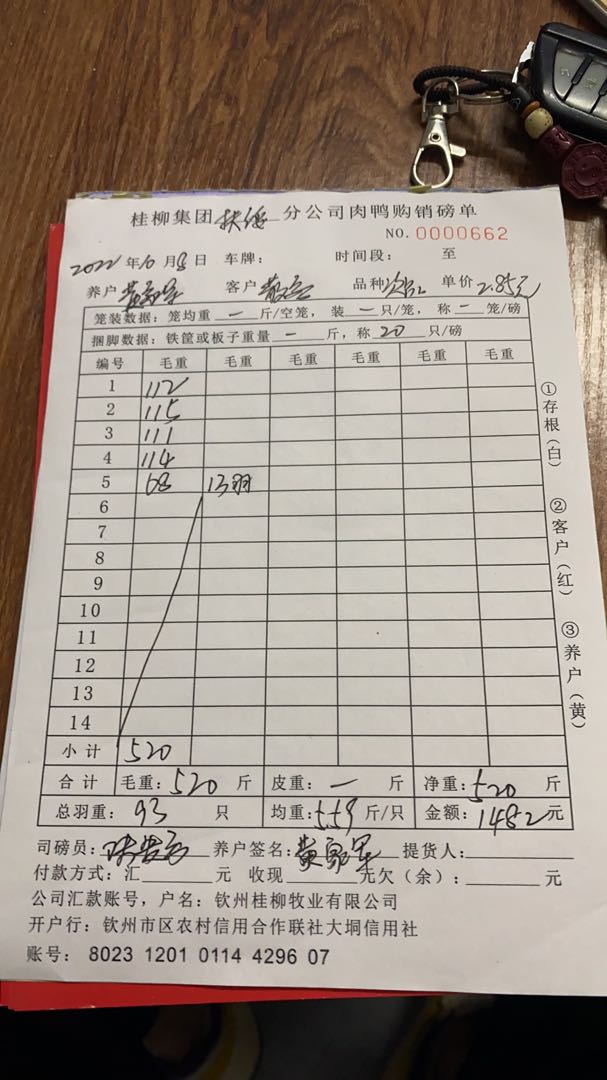 桂柳集团扶绥分公司肉鸭购销磅单
NO.0000662
2022年10月8日 车牌： 时间段： 至
养户 客户 品种 单价2.85元
笼装数据：笼均重 一 斤/空笼，装 一 只/笼，称 一 笼/磅
捆脚数据：铁筐或板子重量 一 斤，称 20 只/磅
编号 毛重 毛重 毛重 毛重 毛重 毛重
1 112
2 115
3 111
4 114
5 68 13羽
6
7
8
9
10
11
12
13
14
小计 520
合计 毛重：520 斤 皮重：一 斤 净重：520 斤
总羽重： 93 只 均重：5.59 斤/只 金额：1482元
司磅员： 养户签名：黄 军 提货人：
付款方式：汇 元 收现 元欠（余）： 元
公司汇款账号，户名：钦州桂柳牧业有限公司
开户行：钦州市区农村信用合作联社大垌信用社
账号：8023 1201 0114 4296 07
①存根（白）
②客户（红）
③养户（黄）